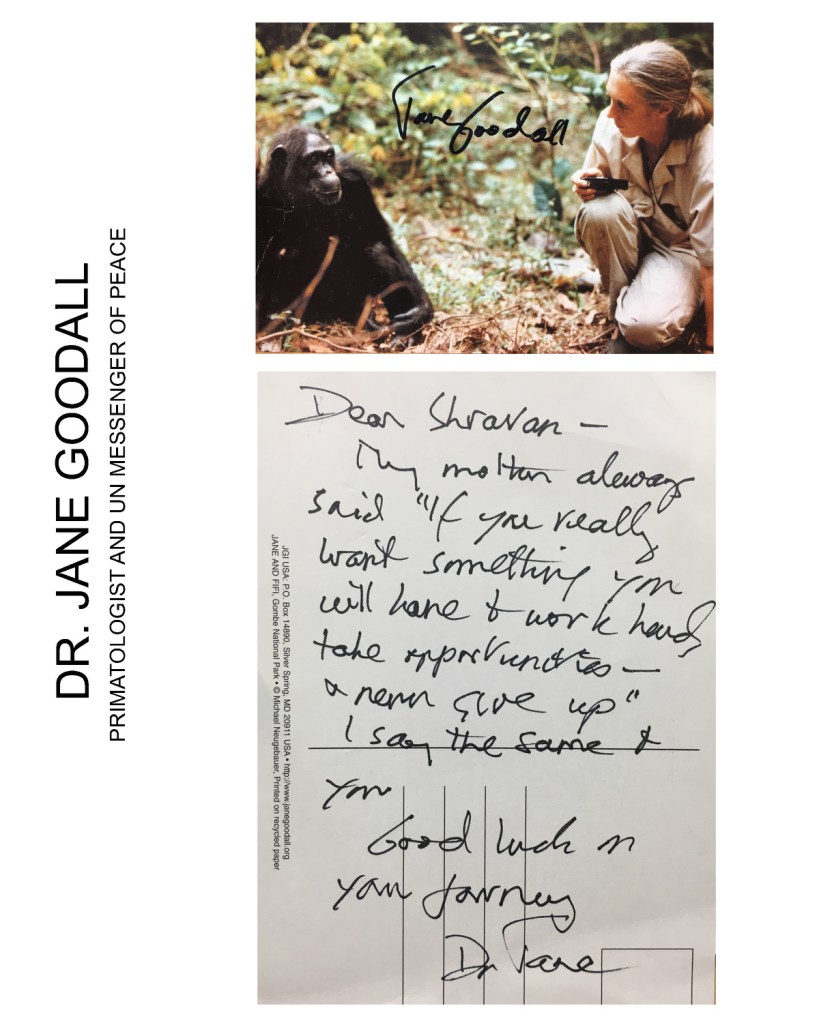 DR. JANE GOODALL
PRIMATOLOGIST AND UN MESSENGER OF PEACE
Jane Goodall
Dear Shravan –
My mother always
said "If you really
want something you
will have to work hard,
take opportunities –
& never give up"
I say the same to
you
Good luck on
your journey
Dr Jane
JGI USA: P.O. Box 14890, Silver Spring, MD 20911 USA • http://www.janegoodall.org
JANE AND FIFI, Gombe National Park • © Michael Neugebauer, Printed on recycled paper